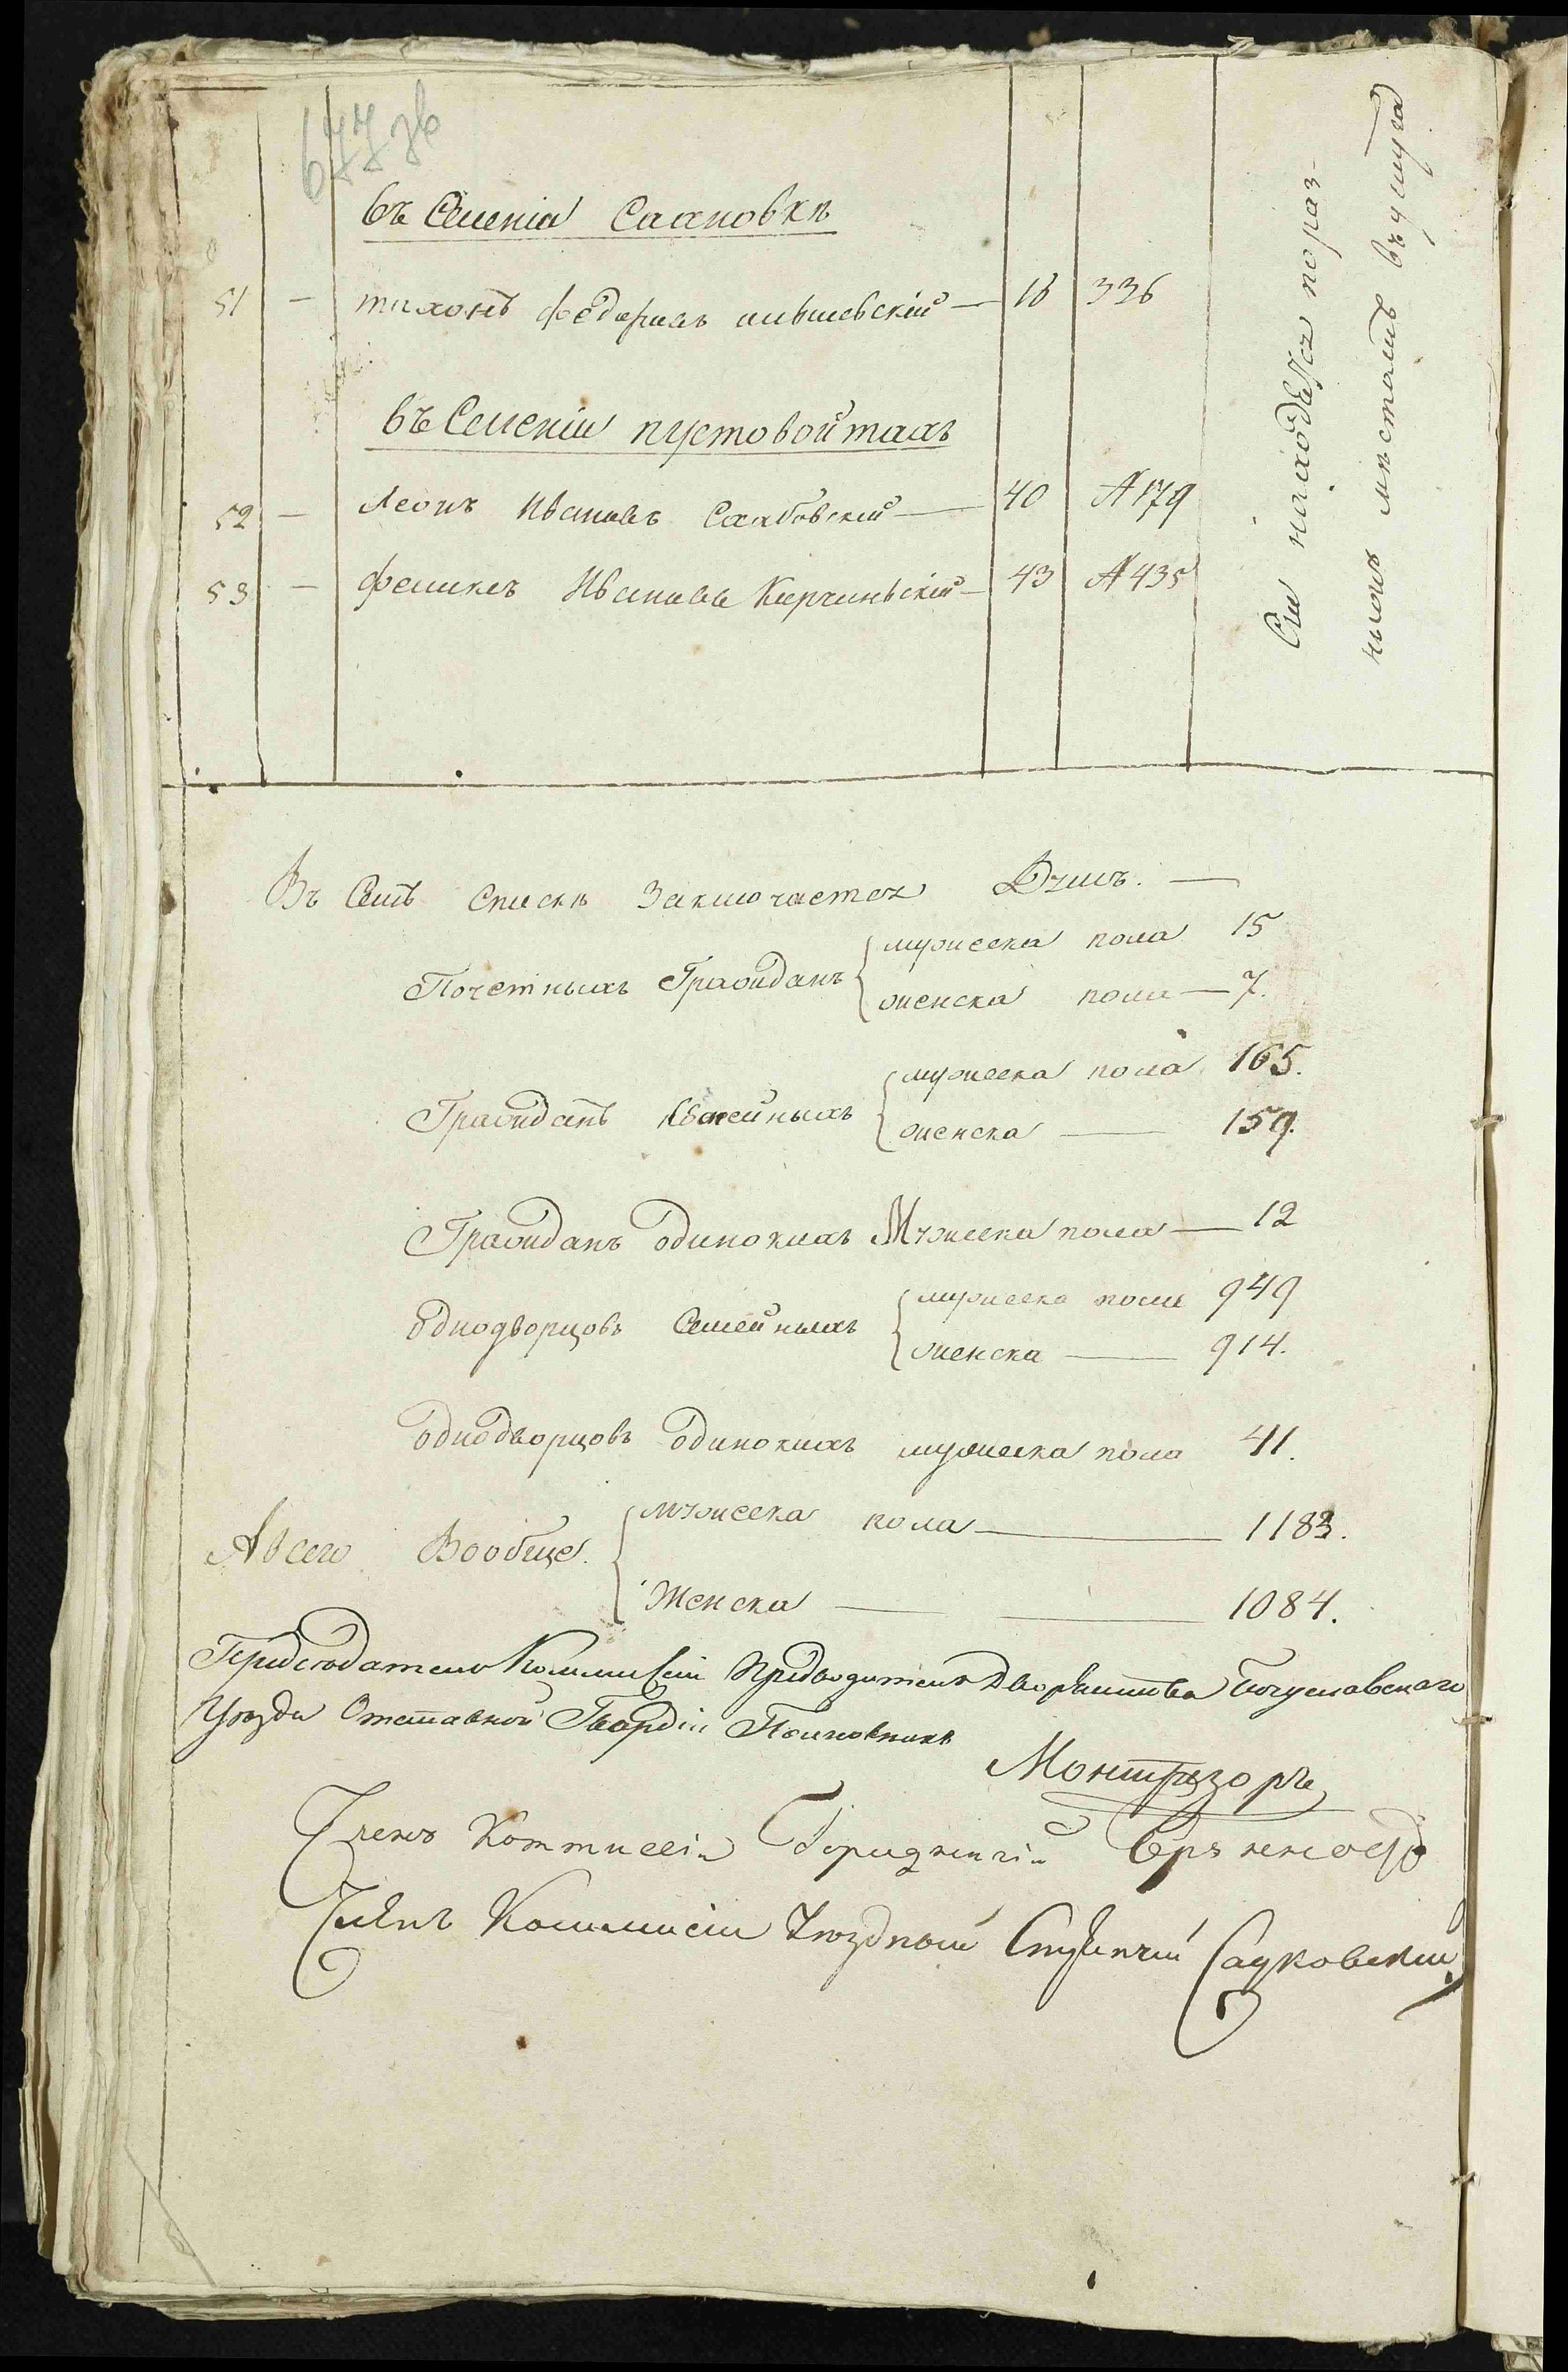 677 зв
въ Селеніи Саановкѣ
51 — тихонъ федоровъ ольшевскій — 18 336
въ Селеніи пустовойтахъ
52 — Леонъ Ивановъ Слабовскій — 40 А 179
53 — феликсъ Ивановъ Карчинскій — 43 А 435
Сіи находятся по раз-
нымъ мѣстамъ въ услуга
Въ Семъ Спискѣ Заключается Душъ. —
Почетныхъ Гражданъ { мужеска пола 15
женска пола — 7.
Гражданъ Семейныхъ { мужеска пола 165.
женска — 159.
Гражданъ одинокихъ Мужеска пола — 12
Однодворцовъ Семейныхъ { мужеска пола 949
женска — 914.
Однодворцовъ одинокихъ мужеска пола 41.
А всего Вообще. { мужеска пола — 1183.
Женска — 1084.
Предсѣдатель Коммисіи Предводитель Дворянства Богуславскаго
Уѣзда Отставной Гвардіи Полковникъ
Монтрезоръ
Членъ Коммисіи Городничій
Членъ Коммисіи Уѣздный Стряпчій Садковскій